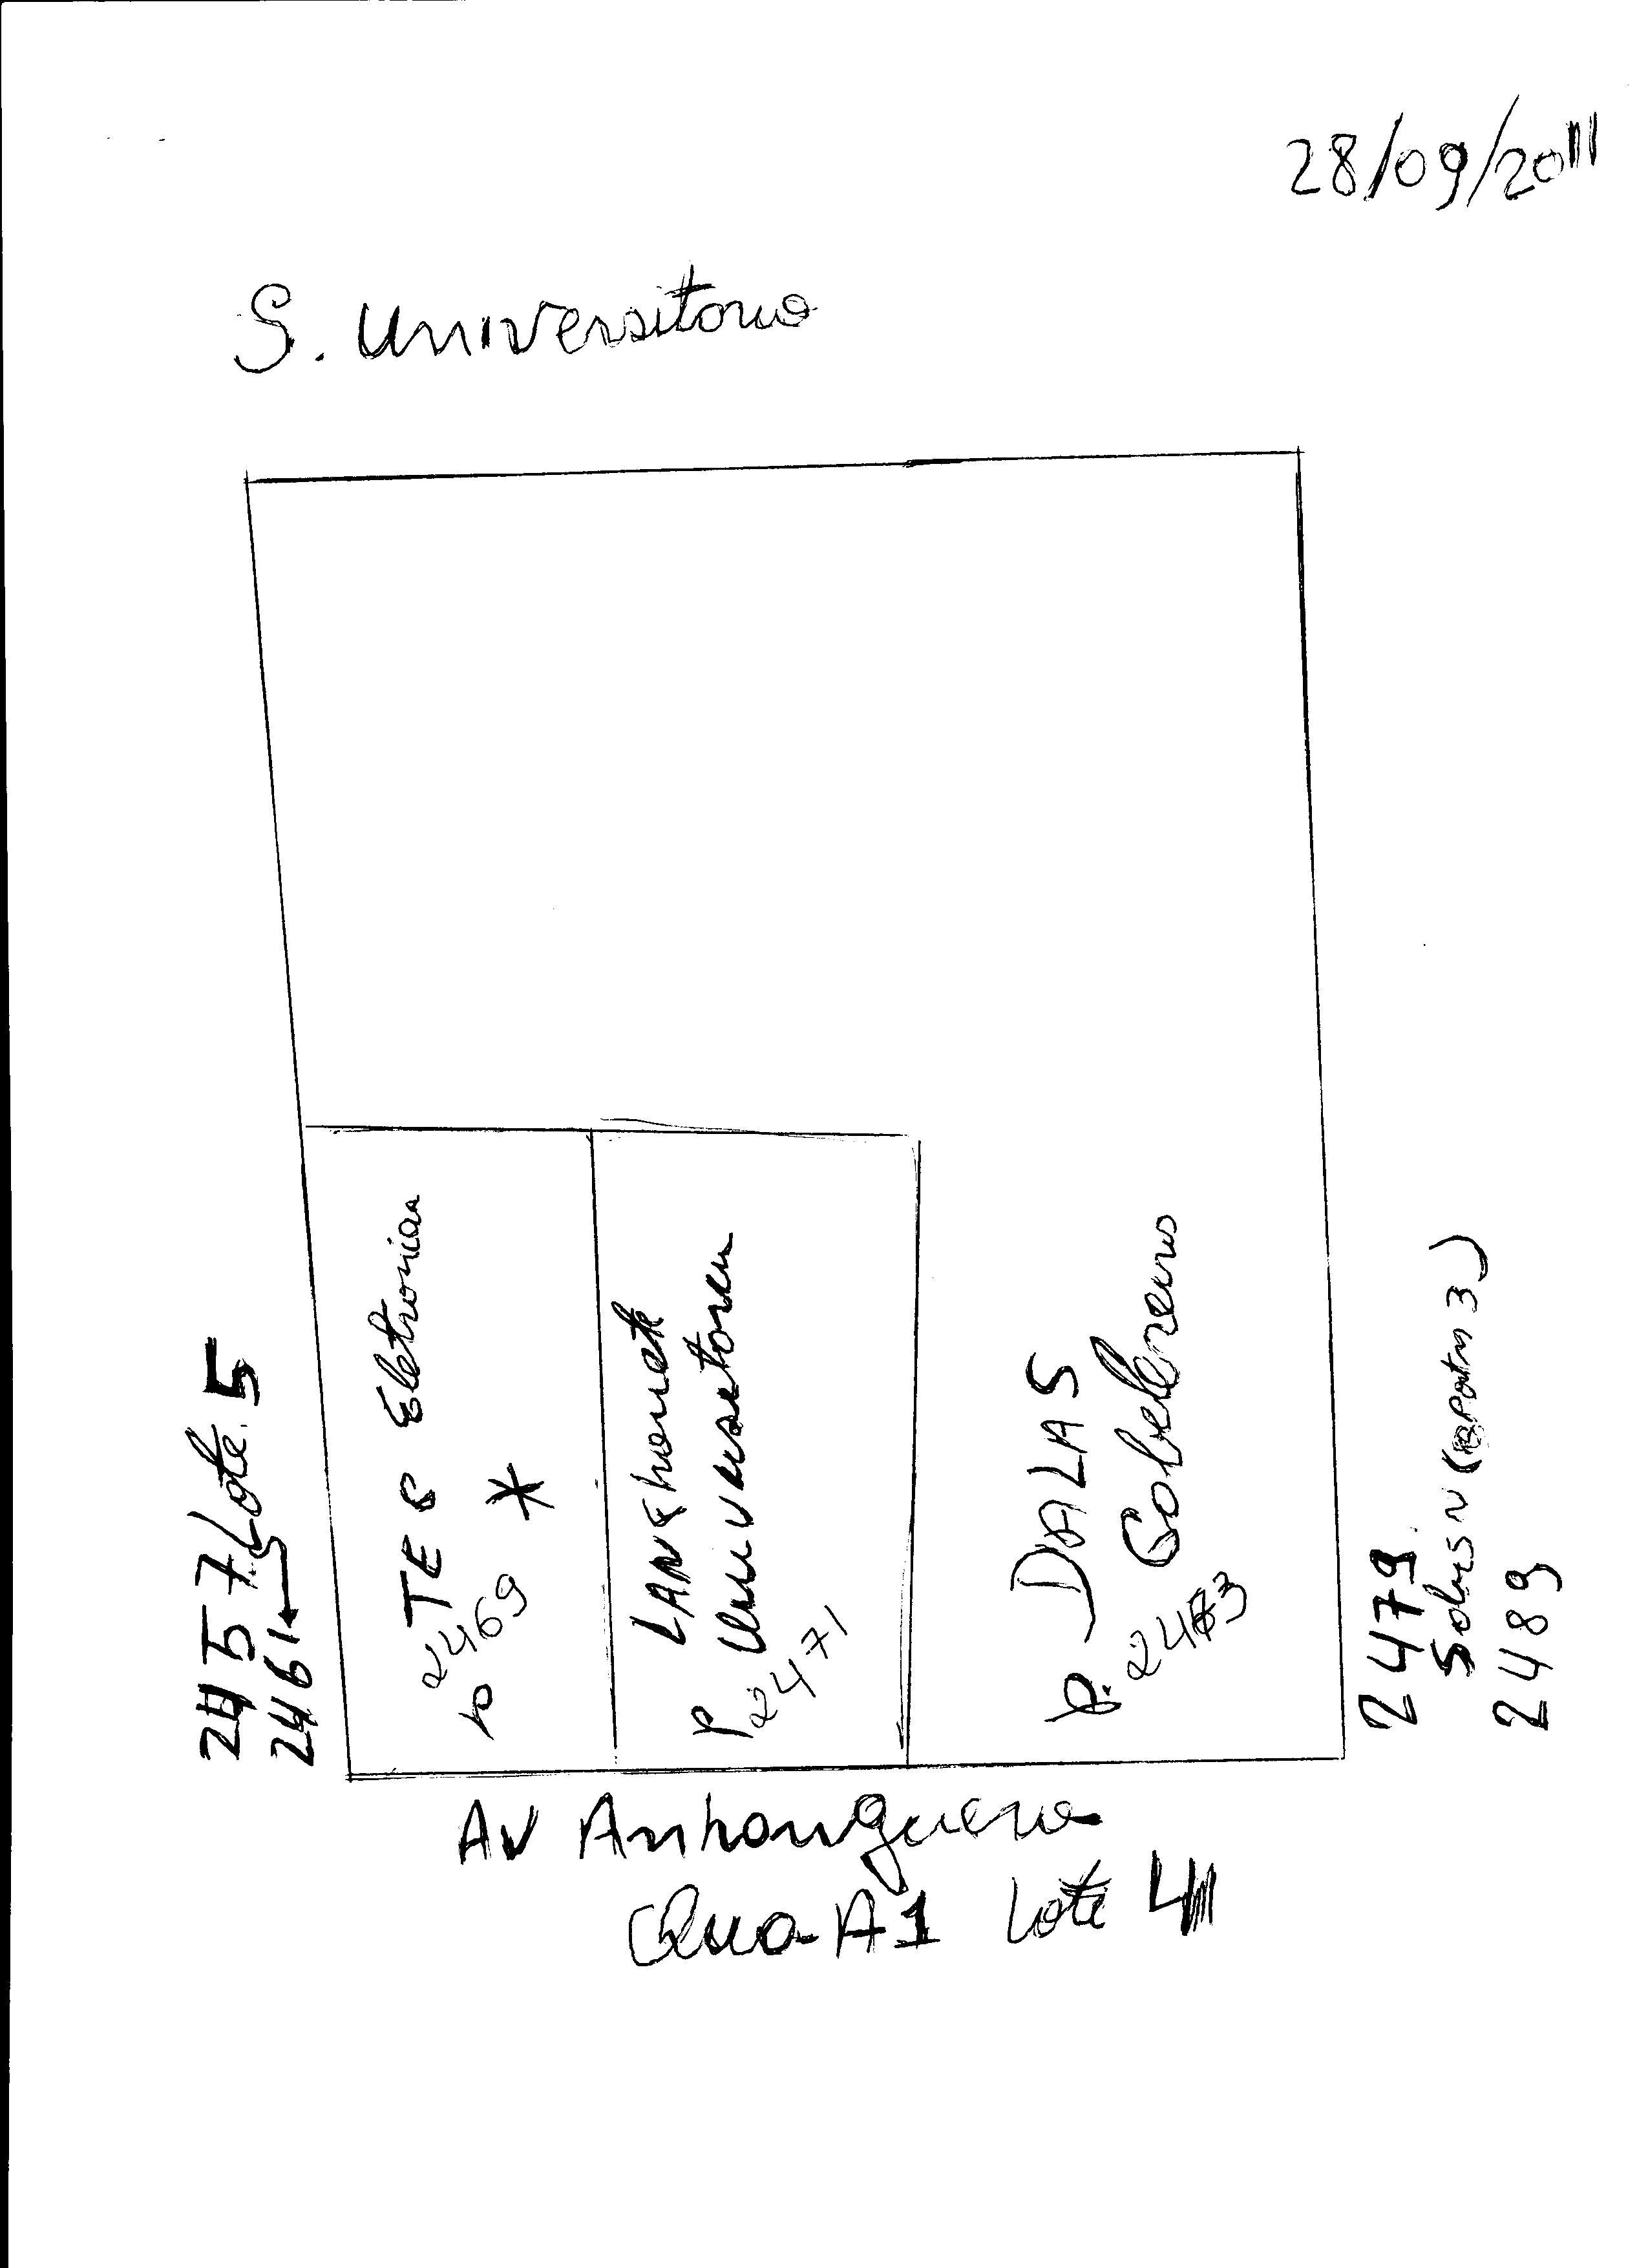 28/09/2011
S. Universitario
2457 Lote 5
2461
TES Eletronica
2469
*
P
LANchonete
Universitaria
P 2471
DALAS
Cabeleireiro
P. 2473
2479
Sobre SN (apartm 3)
2489
AV Anhanguera
Qua-A1 Lote 4